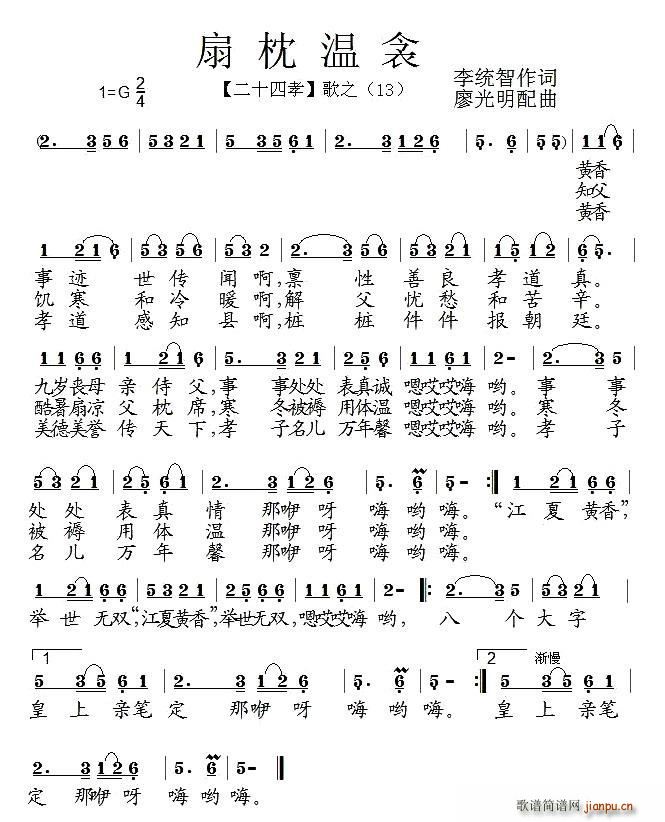 扇枕温衾
1=G 2/4
【二十四孝】歌之（13）
李统智作词
廖光明配曲
(2. 3 5 6 | 5 3 2 1 | 5 3 5 6 | 2. 3 1 2 6 | 5. 6 | 5 5) | 1 1 6 |
黄香
知父
黄香
1 2 1 6 | 5 3 5 6 | 5 3 2 | 2. 3 | 5 6 5 3 | 1 5 1 2 | 6 5. |
事迹 世传闻啊,禀 性善良孝道真。
饥寒 和冷暖啊,解 父忧愁和苦辛。
孝道 感知县啊,桩 桩件件报朝廷。
1 1 6 6 | 1 2 1 6 | 5. 3 | 2 1 2 5 6 | 1 1 6 1 | 2 - | 2. 3 |
九岁丧母 亲侍父,事 事处处表真诚 嗯哎哎嗨 哟。事 事
酷暑扇凉 父枕席,寒 冬被褥用体温 嗯哎哎嗨 哟。寒 冬
美德美誉 传天下,孝 子名儿万年馨 嗯哎哎嗨 哟。孝 子
5 3 2 1 | 2 5 6 1 | 2. 3 1 2 6 | 5. 6 | 5 - :| 1 2 1 6 6 |
处处 表真情 那咿呀 嗨哟嗨。“江夏黄香”,
被褥 用体温 那咿呀 嗨哟嗨。
名儿 万年馨 那咿呀 嗨哟嗨。
1 2 1 6 6 | 5 3 2 1 | 2 6 5 6 | 1 1 6 1 | 2 - |: 2. 3 | 5 5 1 |
举世无双”,“江夏黄香”,举世无双,嗯哎哎嗨 哟, 八 个大字
1
2
渐慢
5 3 5 6 1 | 2. 3 1 2 6 | 5. 6 | 5 - :| 5 3 5 6 1 |
皇上亲笔 定 那咿呀 嗨哟嗨。皇上亲笔
2. 3 1 2 6 | 5. 6 | 5 - ‖
定 那咿呀 嗨哟嗨。
歌谱简谱网
jianpu.cn